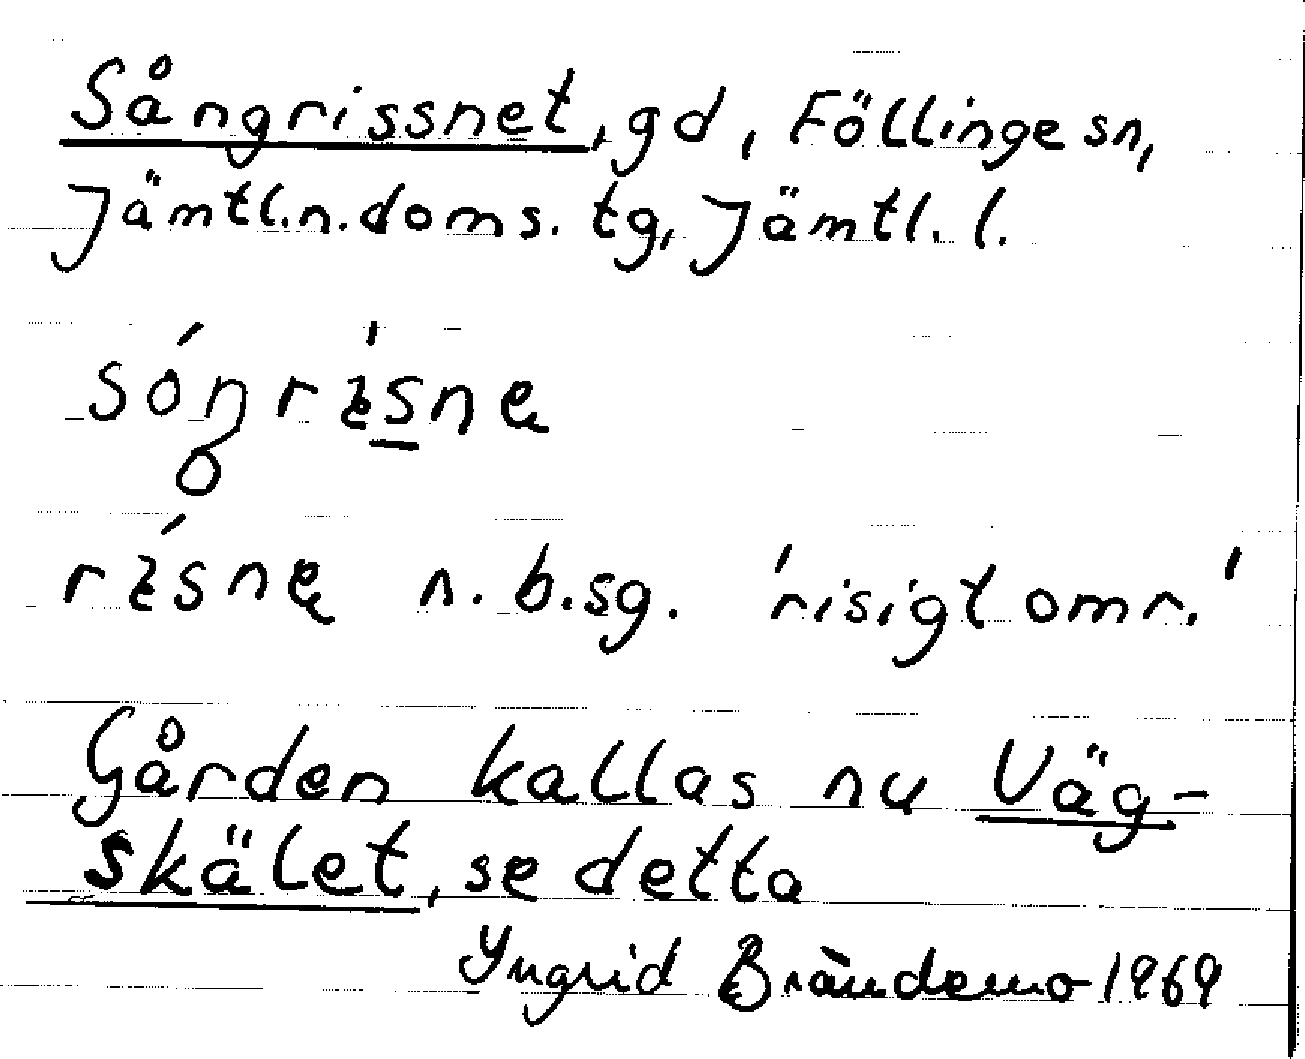 Sångrissnet, gd, Föllinge sn,
Jämtl.n.doms. tg, Jämtl. l.
sóŋrìsne
rísne n. b.sg. 'risigt omr.'
Gården kallas nu Väg-
skälet, se detta
Yngrid Brändemo 1969